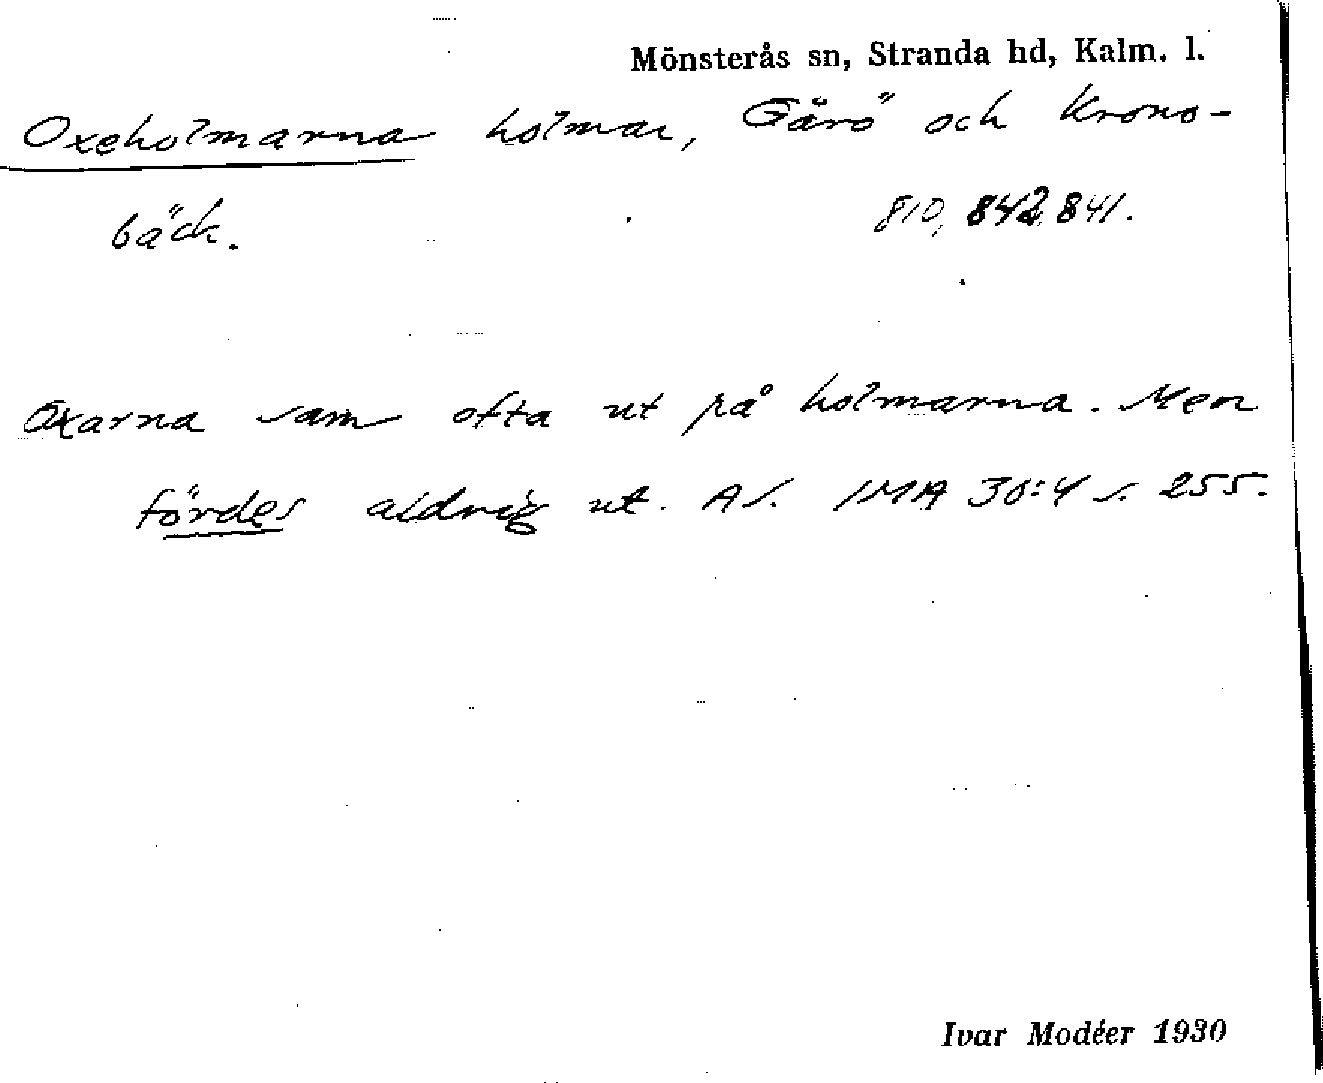 Mönsterås sn, Stranda hd, Kalm. l.
Oxeholmarna holmar, Gårö och Krono-
bäck. 810, 842, 841.
Oxarna sam ofta ut på holmarna. Men
fördes aldrig ut. AS. IMA 30:4 s. 255.
Ivar Modéer 1930